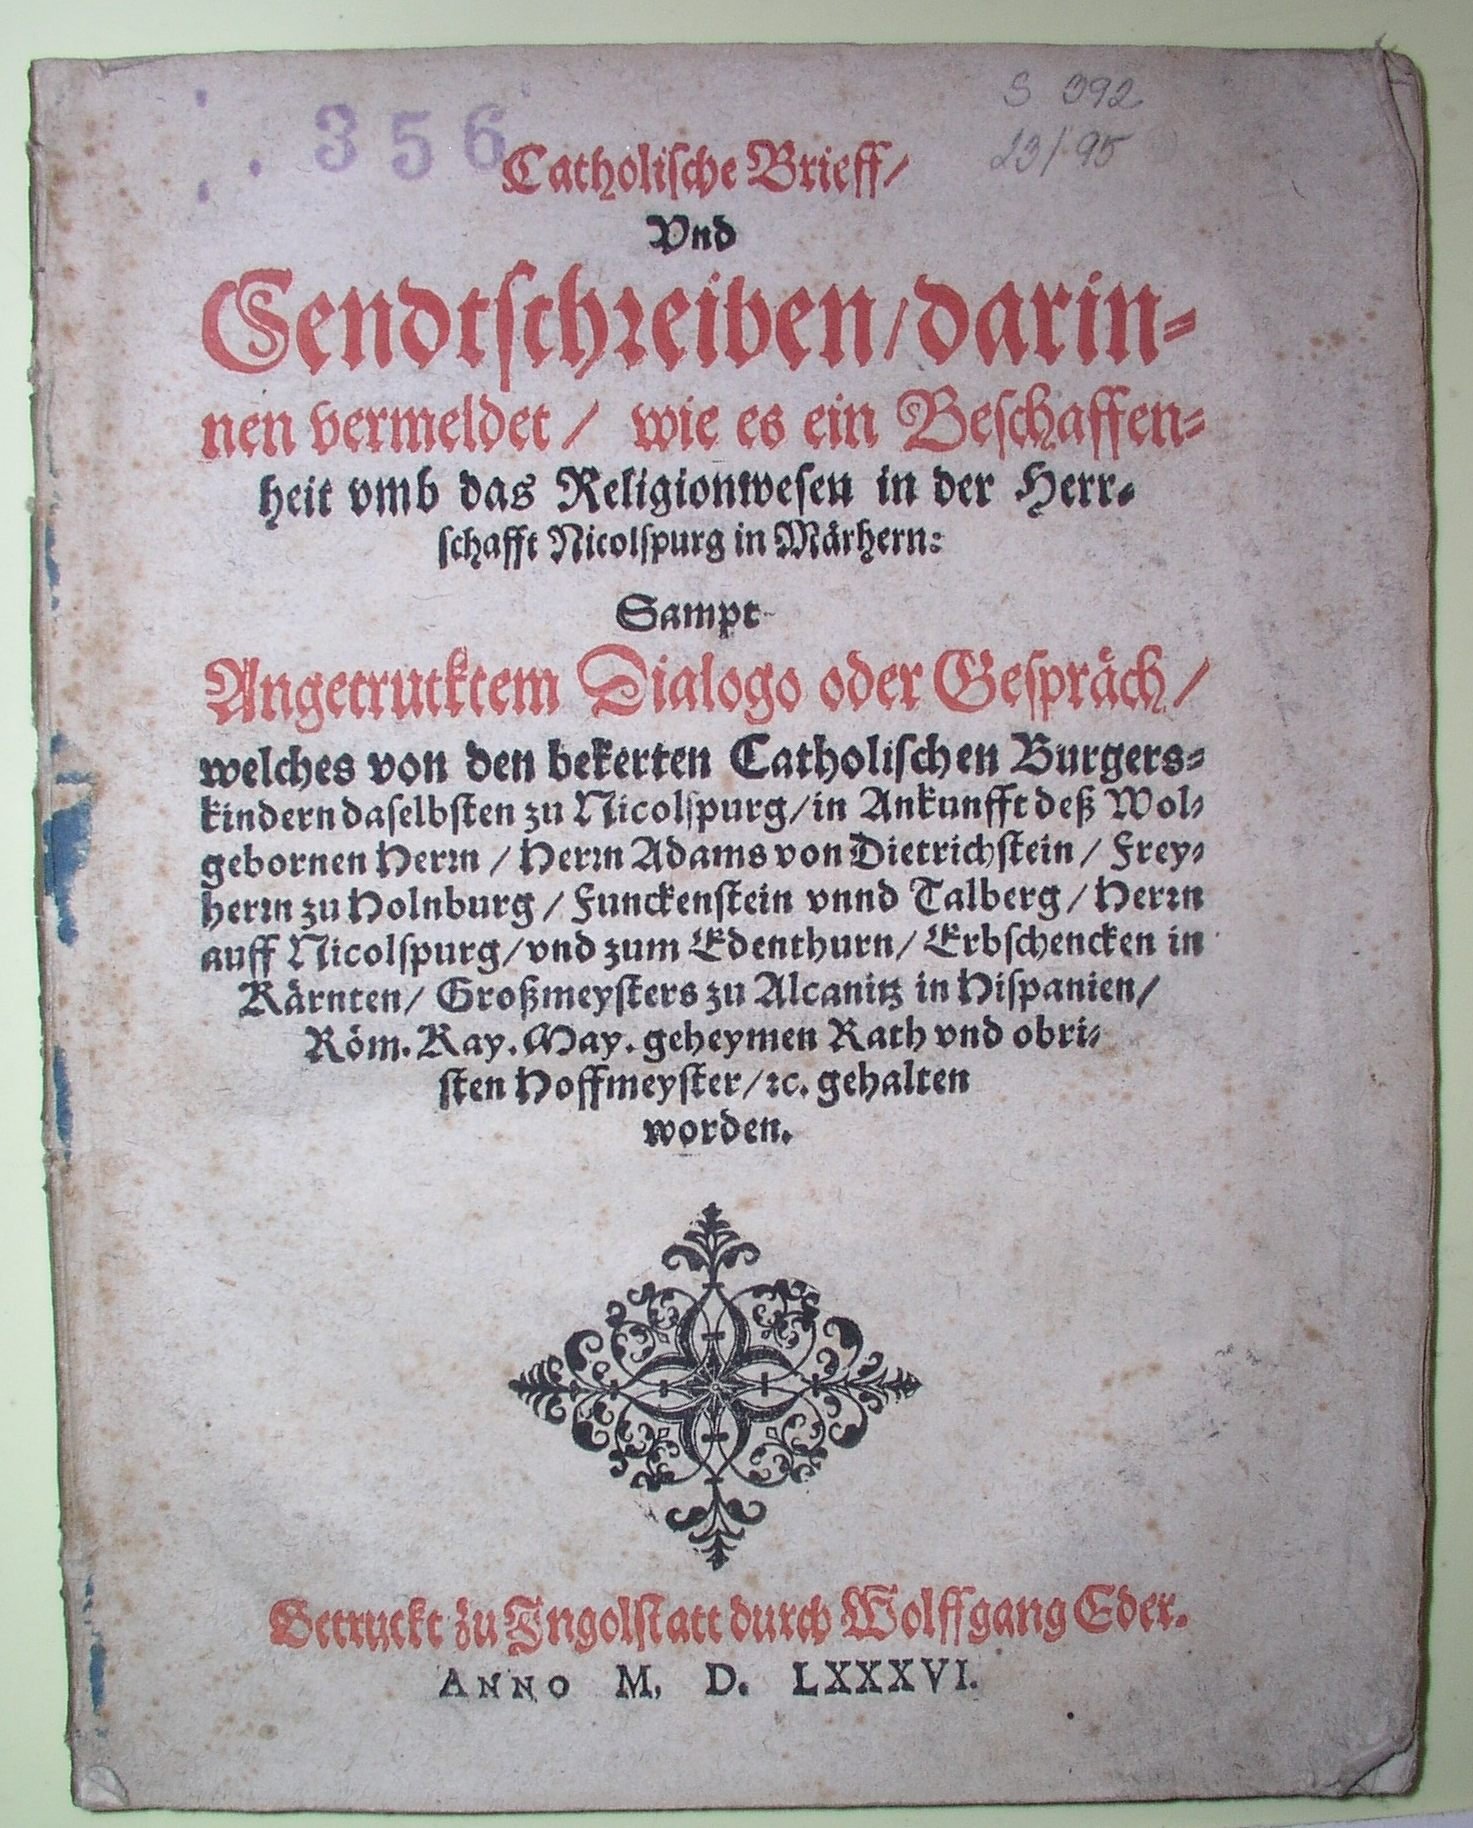 356
S 392
23/95
Catholische Brieff/
Vnd
Sendtschreiben/darin-
nen vermeldet / wie es ein Beschaffen-
heit vmb das Religionwesen in der Herr-
schafft Nicolspurg in Märhern:
Sampt
Angetrucktem Dialogo oder Gespräch/
welches von den bekerten Catholischen Burgers-
kindern daselbsten zu Nicolspurg/in Ankunfft deß Wol-
gebornen Herrn / Herrn Adams von Dietrichstein / Frey-
herrn zu Holnburg / Funckenstein vnnd Talberg / Herrn
auff Nicolspurg/vnd zum Edenthurn/ Erbschencken in
Kärnten/ Großmeysters zu Alcanitz in Hispanien/
Röm. Kay. May. geheymen Rath vnd obri-
sten Hoffmeyster/ꝛc. gehalten
worden.
Getruckt zu Ingolstatt durch Wolffgang Eder.
ANNO M. D. LXXXVI.